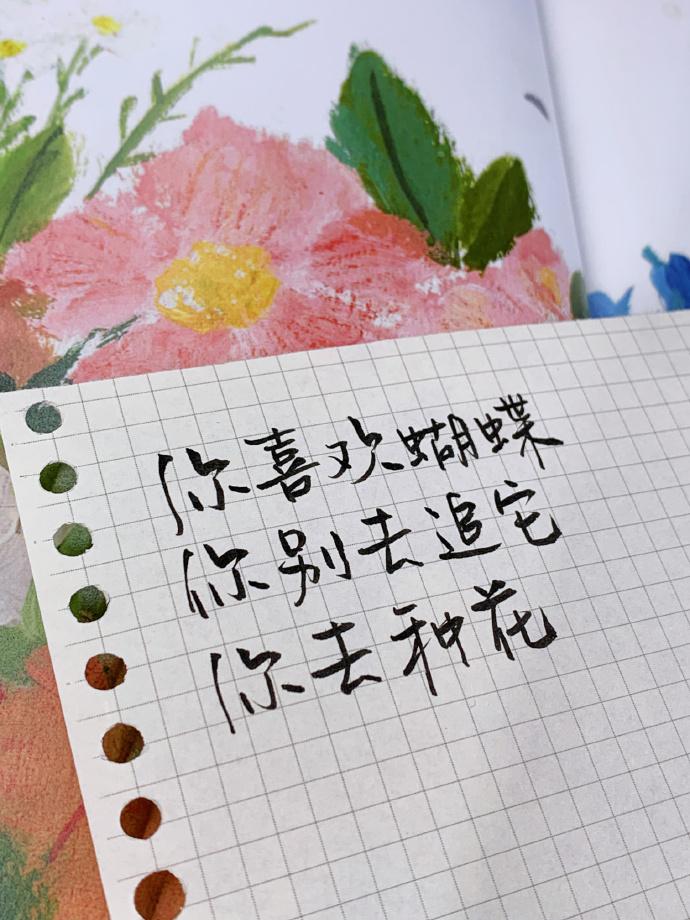 你喜欢蝴蝶
你别去追它
你去种花